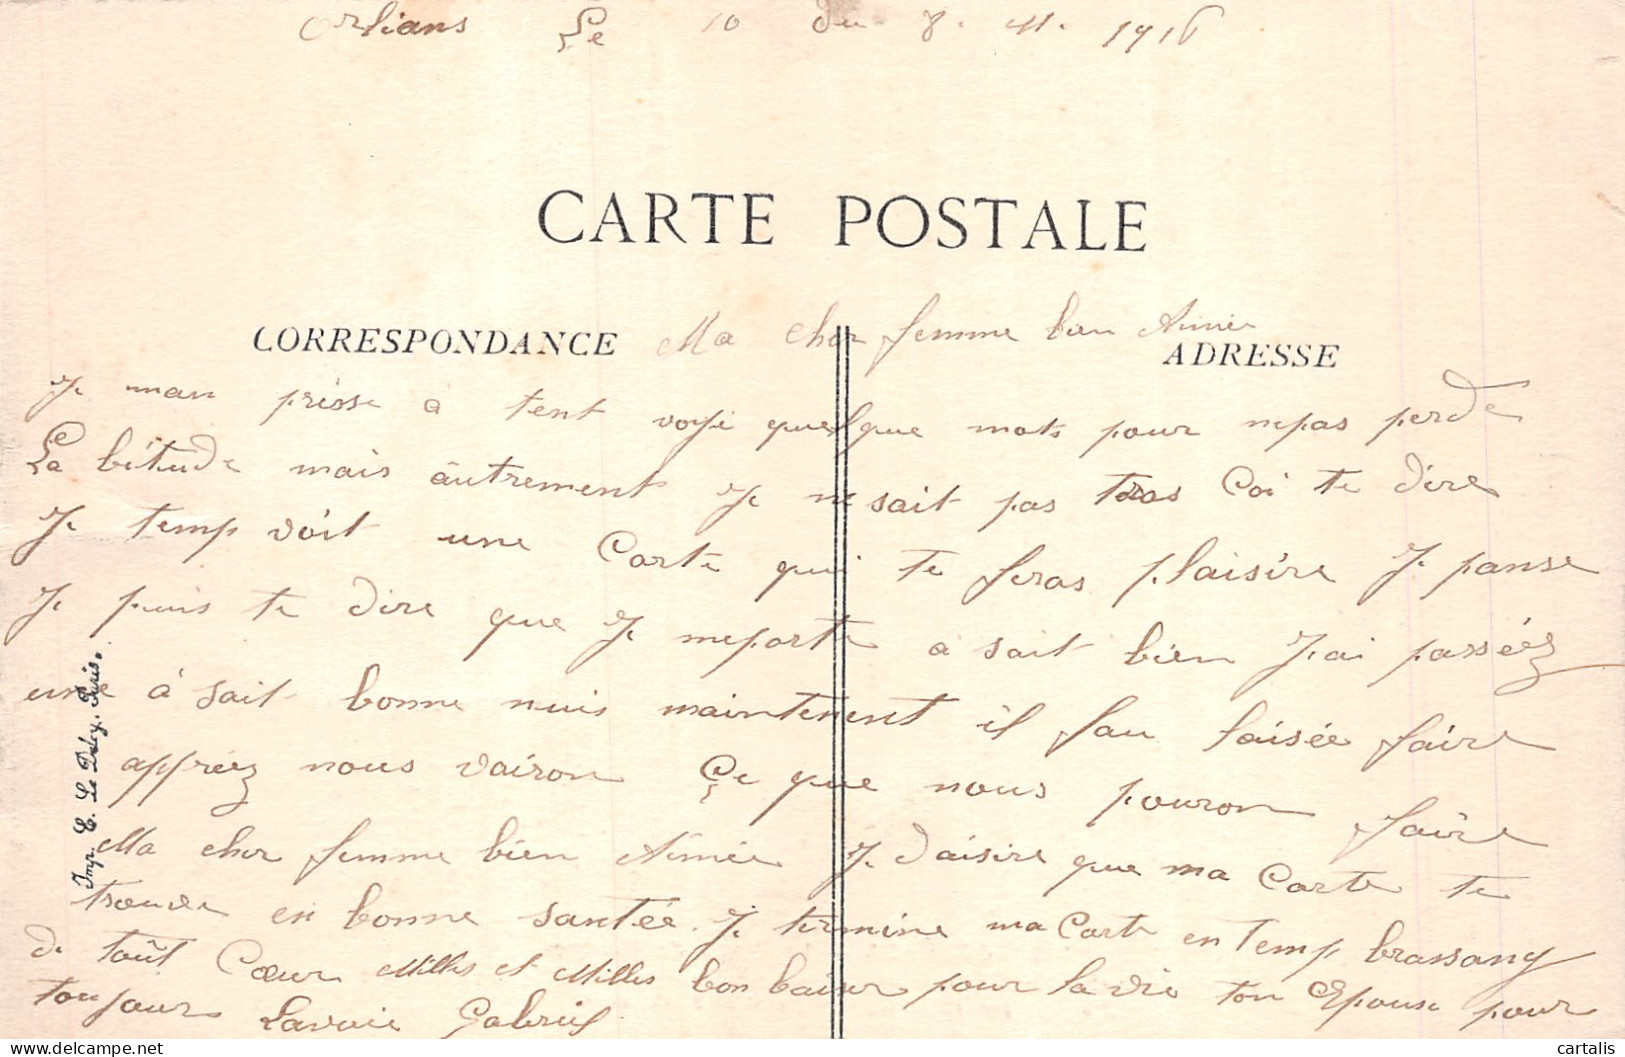 Orlians Le 10 du 8. M. 1916
CARTE POSTALE
CORRESPONDANCE
ADRESSE
Ma cher femme bien Aimée
Je man prèsse à tent voyé quelque mots pour mpas perde
La bétude mais autrement Je ne sait pas tras Coi te dire
Je temp voit une Carte qui te feras plaisire Je panse
Je puis te dire que Je meporte a sait bien J'ai passéz
une à sait bonne nuis maintenent il fau laisée faire
apprèz nous vairon Ce que nous pouron faire
Ma cher femme bien Aimée Je daisire que ma Carte te
trouve en bonne santée. Je termine ma Carte en Temp brassang
de toût Cœur Milles et Milles bon baiser pour la vie ton Epouse pour
toujour Lavoie Gabriel
Imp. E. Le Deley, Paris.